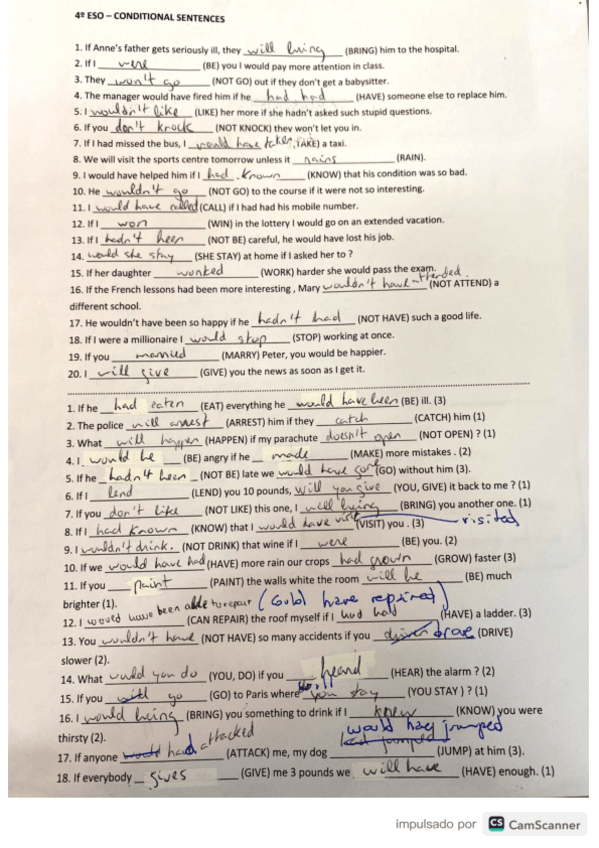 4º ESO – CONDITIONAL SENTENCES
1. If Anne's father gets seriously ill, they will bring (BRING) him to the hospital.
2. If I were (BE) you I would pay more attention in class.
3. They won't go (NOT GO) out if they don't get a babysitter.
4. The manager would have fired him if he had had (HAVE) someone else to replace him.
5. I wouldn't like (LIKE) her more if she hadn't asked such stupid questions.
6. If you don't knock (NOT KNOCK) they won't let you in.
7. If I had missed the bus, I would have taken (TAKE) a taxi.
8. We will visit the sports centre tomorrow unless it rains (RAIN).
9. I would have helped him if I had known (KNOW) that his condition was so bad.
10. He wouldn't go (NOT GO) to the course if it were not so interesting.
11. I would have called (CALL) if I had had his mobile number.
12. If I won (WIN) in the lottery I would go on an extended vacation.
13. If I hadn't been (NOT BE) careful, he would have lost his job.
14. would she stay (SHE STAY) at home if I asked her to ?
15. If her daughter worked (WORK) harder she would pass the exam.
16. If the French lessons had been more interesting , Mary wouldn't have attended (NOT ATTEND) a
different school.
17. He wouldn't have been so happy if he hadn't had (NOT HAVE) such a good life.
18. If I were a millionaire I would stop (STOP) working at once.
19. If you married (MARRY) Peter, you would be happier.
20. I will give (GIVE) you the news as soon as I get it.
1. If he had eaten (EAT) everything he would have been (BE) ill. (3)
2. The police will arrest (ARREST) him if they catch (CATCH) him (1)
3. What will happen (HAPPEN) if my parachute doesn't open (NOT OPEN) ? (1)
4. I would be (BE) angry if he made (MAKE) more mistakes . (2)
5. If he hadn't been (NOT BE) late we would have gone (GO) without him (3).
6. If I lend (LEND) you 10 pounds, will you give (YOU, GIVE) it back to me ? (1)
7. If you don't like (NOT LIKE) this one, I will bring (BRING) you another one. (1)
8. If I had known (KNOW) that I would have visit (VISIT) you . (3) visited
9. I wouldn't drink. (NOT DRINK) that wine if I were (BE) you. (2)
10. If we would have had (HAVE) more rain our crops had grown (GROW) faster (3)
11. If you paint (PAINT) the walls white the room will be (BE) much
brighter (1).
12. I would have been able to repair (could have repired) (CAN REPAIR) the roof myself if I had had (HAVE) a ladder. (3)
13. You wouldn't have (NOT HAVE) so many accidents if you drove (DRIVE)
slower (2).
14. What would you do (YOU, DO) if you heard (HEAR) the alarm ? (2)
15. If you go (GO) to Paris where will you stay (YOU STAY ) ? (1)
16. I would bring (BRING) you something to drink if I knew (KNOW) you were
thirsty (2).
17. If anyone had attacked (ATTACK) me, my dog would have jumped (JUMP) at him (3).
18. If everybody gives (GIVE) me 3 pounds we will have (HAVE) enough. (1)
impulsado por CS CamScanner